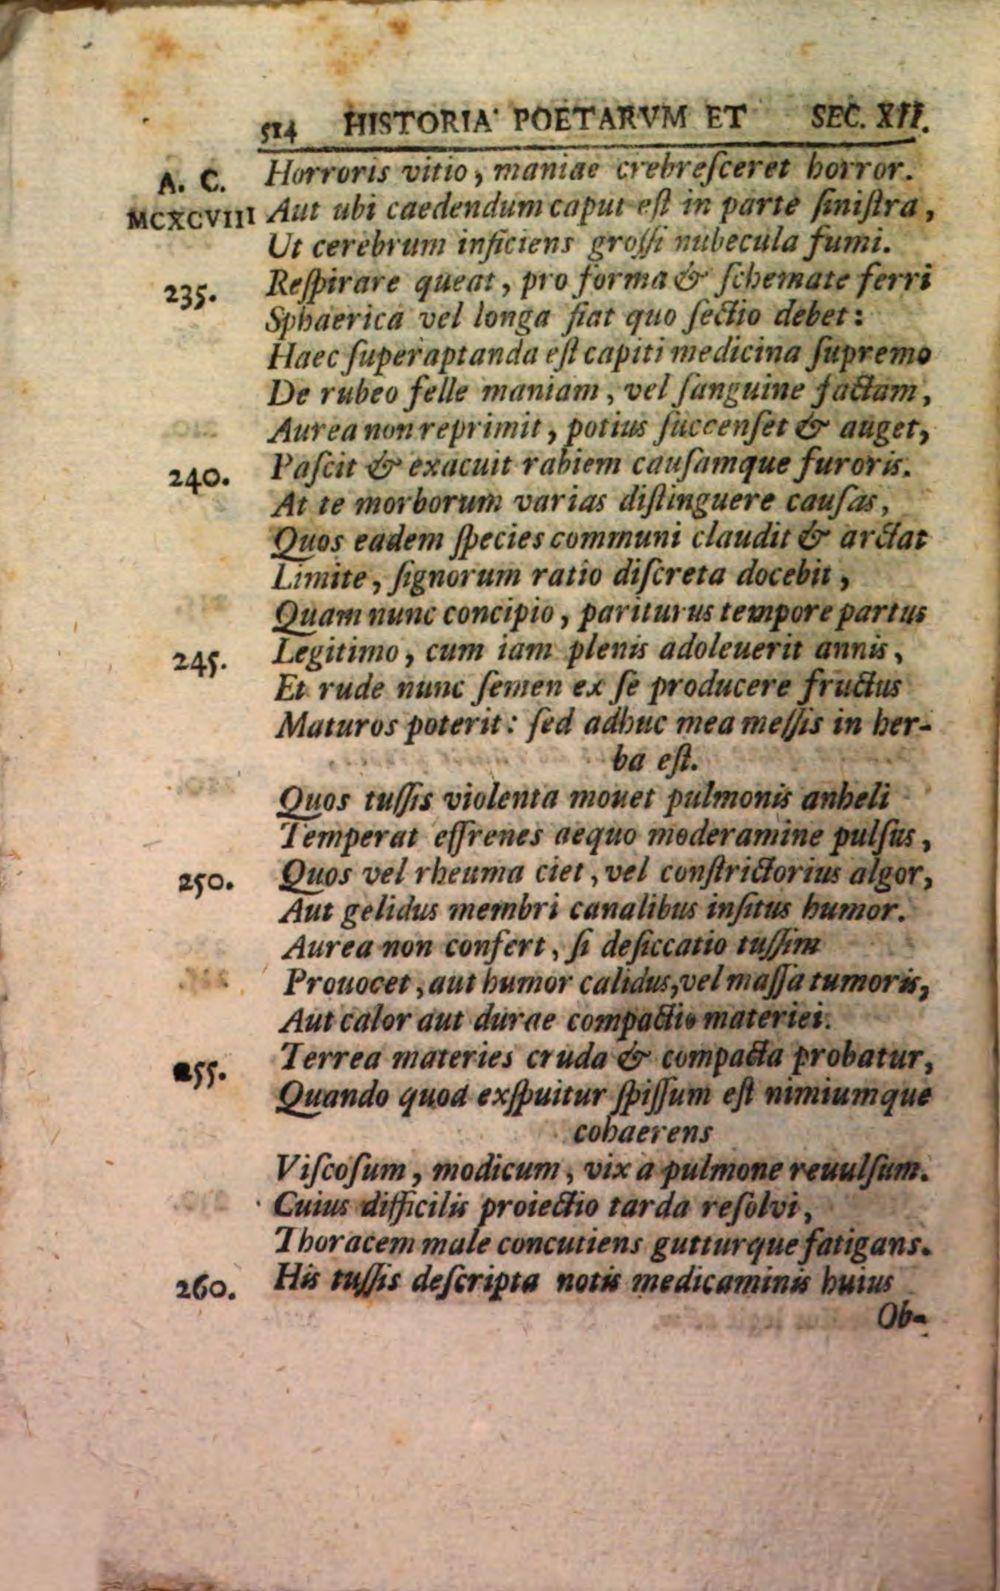 514 HISTORIA POETARVM ET SEC. XII.
A. C. Horroris vitio, maniae crebreſceret horror.
MCXCVIII Aut ubi caedendum caput eſt in parte ſiniſtra,
Ut cerebrum inficiens groſſi nubecula fumi.
235. Reſpirare queat, pro forma & ſchemate ferri
Sphaerica vel longa fiat quo ſectio debet:
Haec ſuperaptanda eſt capiti medicina ſupremo
De rubeo felle maniam, vel ſanguine factam,
Aurea non reprimit, potius ſuccenſet & auget,
240. Paſcit & exacuit rabiem cauſamque furoris.
At te morborum varias diſtinguere cauſas,
Quos eadem ſpecies communi claudit & arctat
Limite, ſignorum ratio diſcreta docebit,
Quam nunc concipio, pariturus tempore partus
245. Legitimo, cum iam plenis adoleuerit annis,
Et rude nunc ſemen ex ſe producere fructus
Maturos poterit: ſed adhuc mea meſſis in her-
ba eſt.
Quos tuſſis violenta mouet pulmonis anheli
Temperat effrenes aequo moderamine pulſus,
250. Quos vel rheuma ciet, vel conſtrictorius algor,
Aut gelidus membri canalibus inſitus humor.
Aurea non confert, ſi deſiccatio tuſſim
Prouocet, aut humor calidus, vel maſſa tumoris,
Aut calor aut durae compactio materiei.
255. Terrea materies cruda & compacta probatur,
Quando quod exſpuitur ſpiſſum eſt nimiumque
cohaerens
Viſcoſum, modicum, vix a pulmone reuulſum.
Cuius difficilis proiectio tarda reſolvi,
Thoracem male concutiens gutturque fatigans.
260. His tuſſis deſcripta notis medicaminis huius
Ob-